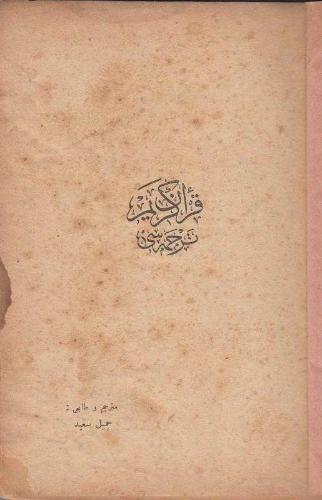 قرآن كريم
ترجمه سی
مترجم و طابعی :
جميل سعيد